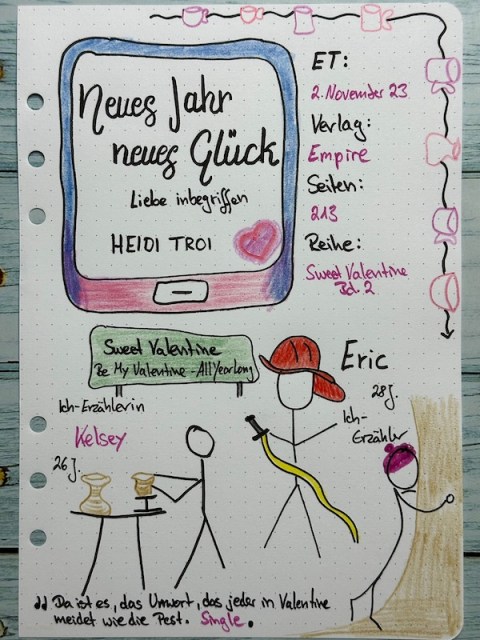 Neues Jahr
neues Glück
Liebe inbegriffen
HEIDI TROI
ET:
2. November 23
Verlag:
Empire
Seiten:
213
Reihe:
Sweet Valentine
Bd. 2
Sweet Valentine
Be My Valentine - All Year Long
Ich-Erzählerin
Kelsey
26 J.
Eric
28 J.
Ich-
Erzähler
" Da ist es, das Unwort, das jeder in Valentine
meidet wie die Pest. Single.